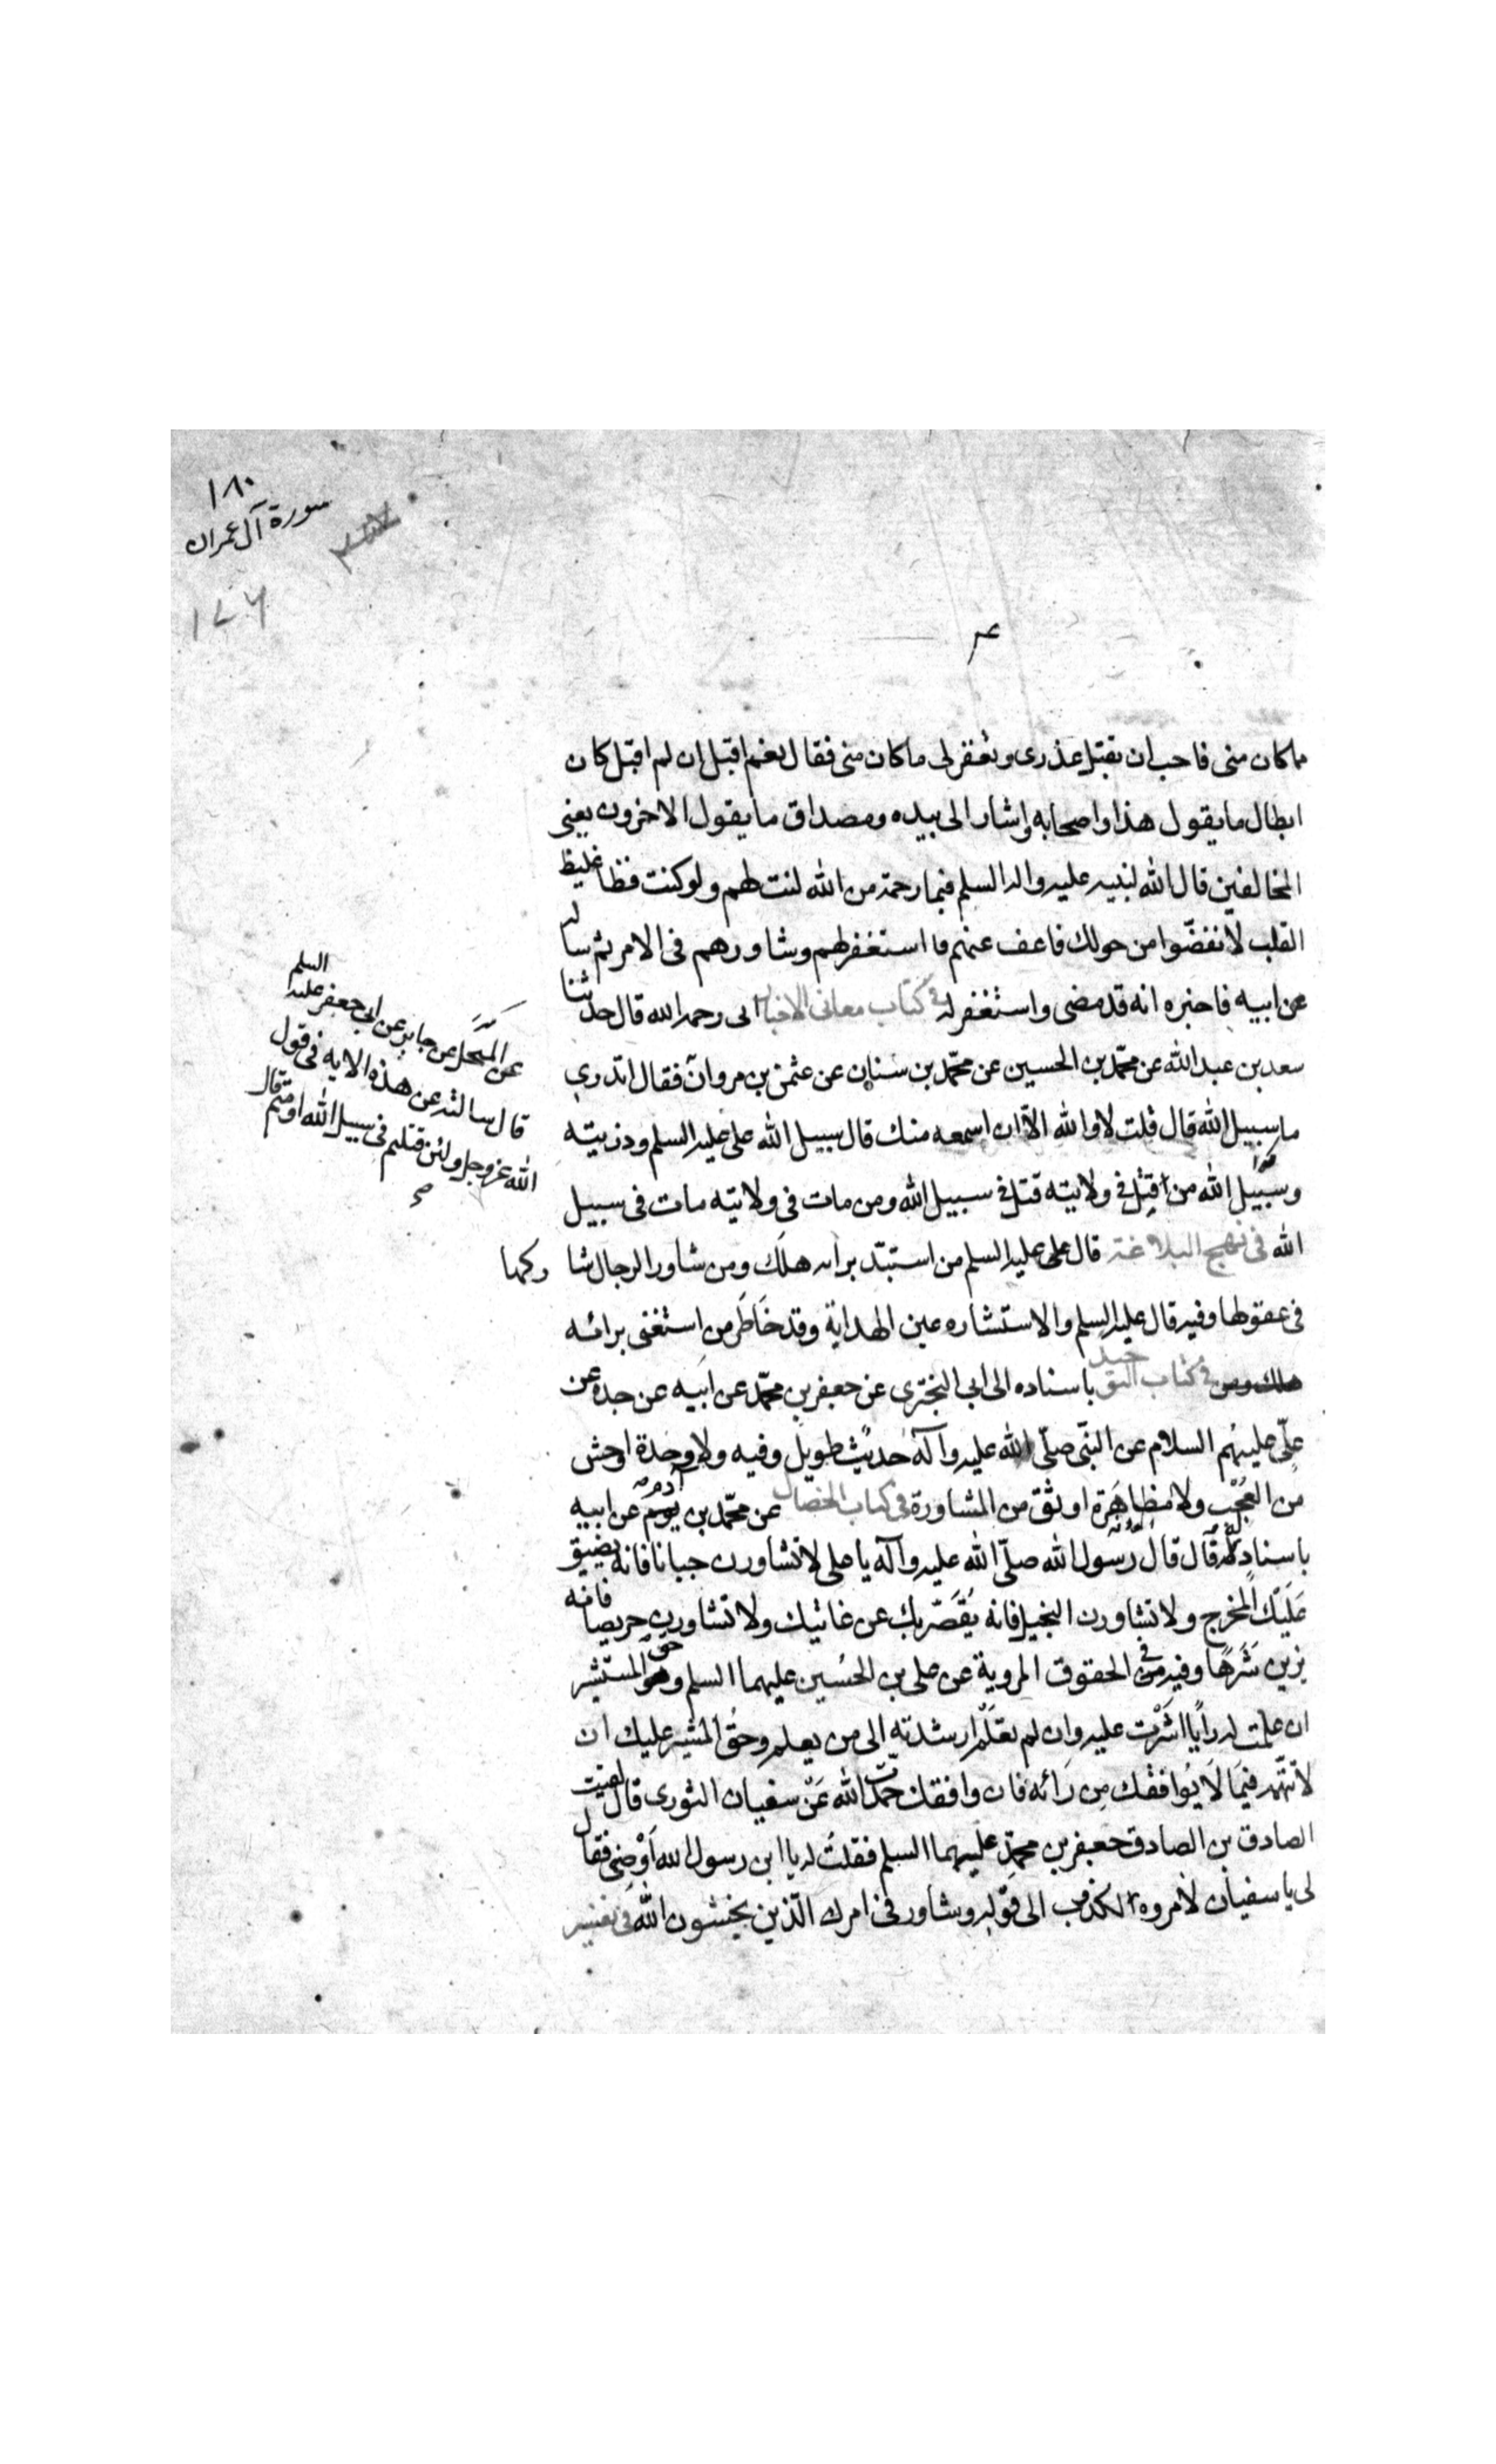 ١٨٠
سورة آل عمران
١٧٦
ما كان منى فاحب ان تقبل عذرى وتغفر لى ما كان منى فقال نعم اقبل ان لم اقبل كان
ابطال ما يقول هذا واصحابه واشار الى بيده ومصداق ما يقول الاخرون يعنى
المخالفين قال الله لنبيه عليه واله السلم فبما رحمة من الله لنت لهم ولو كنت فظا غليظ
القلب لانفضّوا من حولك فاعف عنهم واستغفر لهم وشاورهم فى الامر ثم ساله
عن ابيه فاخبره انه قد مضى واستغفر له فى كتاب معانى الاخبار ابى رحمه الله قال حدثنا
سعد بن عبد الله عن محمّد بن الحسين عن محمّد بن سنان عن عثمن بن مروان فقال اتدرى
ما سبيل الله قال قلت لا والله الاّ ان اسمعه منك قال سبيل الله على عليه السلم وذريته
وسبيل الله من قتل فى ولايته قتل فى سبيل الله ومن مات فى ولايته مات فى سبيل
الله فى نهج البلاغة قال على عليه السلم من استبدّ برايه هلك ومن شاور الرجال شاركها
فى عقولها وفيه قال عليه السلم والاستشاره عين الهداية وقد خَاطَر من استغنى برائه
فى كتاب التوحيد باسناده الى ابى البخترى عن جعفر بن محمّد عن ابيه عن جده عن
علّى عليهم السلام عن النبّى صلّى الله عليه وآله حديث طويل وفيه ولا وحدة اوحش
من العُجْب ولا مظاهَرة اوثق من المشاورة فى كتاب الخصال عن محمّد بن آدم عن ابيه
باسناده قال قال رسول الله صلّى الله عليه وآله يا على لا تشاورن جبانا فانه يضيق
عَليك المخرج ولا تشاورن البخيل فانه يُقَصّر بك عن غايتك ولا تشاورن حريصا فانه
يزين شَرَهًا وفيه فى الحقوق المروية عن على بن الحسُين عليهما السلم وحق المستشير
ان علمت له راًيا اشَرْت عليه وان لم تعلَم ارشدته الى من يعلم وحقُ المشير عليك ان
لا تتّهمه فيمَا لَا يُوافقك مِن رَائه فان وافقك حمدت الله عَنْ سفيان الثورى قال لقيت
الصادق بن الصادق جعفر بن محمّدٍ عليهما السلم فقلتُ له يا ابن رسول الله اَوْصِنى فقال
لى يا سفيان لا مروه لكذوب الى قوله وشاور فى امرك الّذين يخشون الله فى تفسير
عن المنخّل عن جابر عن ابى جعفر عليه السلم
قال سالته عن هذه الايه فى قول
الله عز وجل ولئن قتلتم فى سبيل الله او متم قال
صح